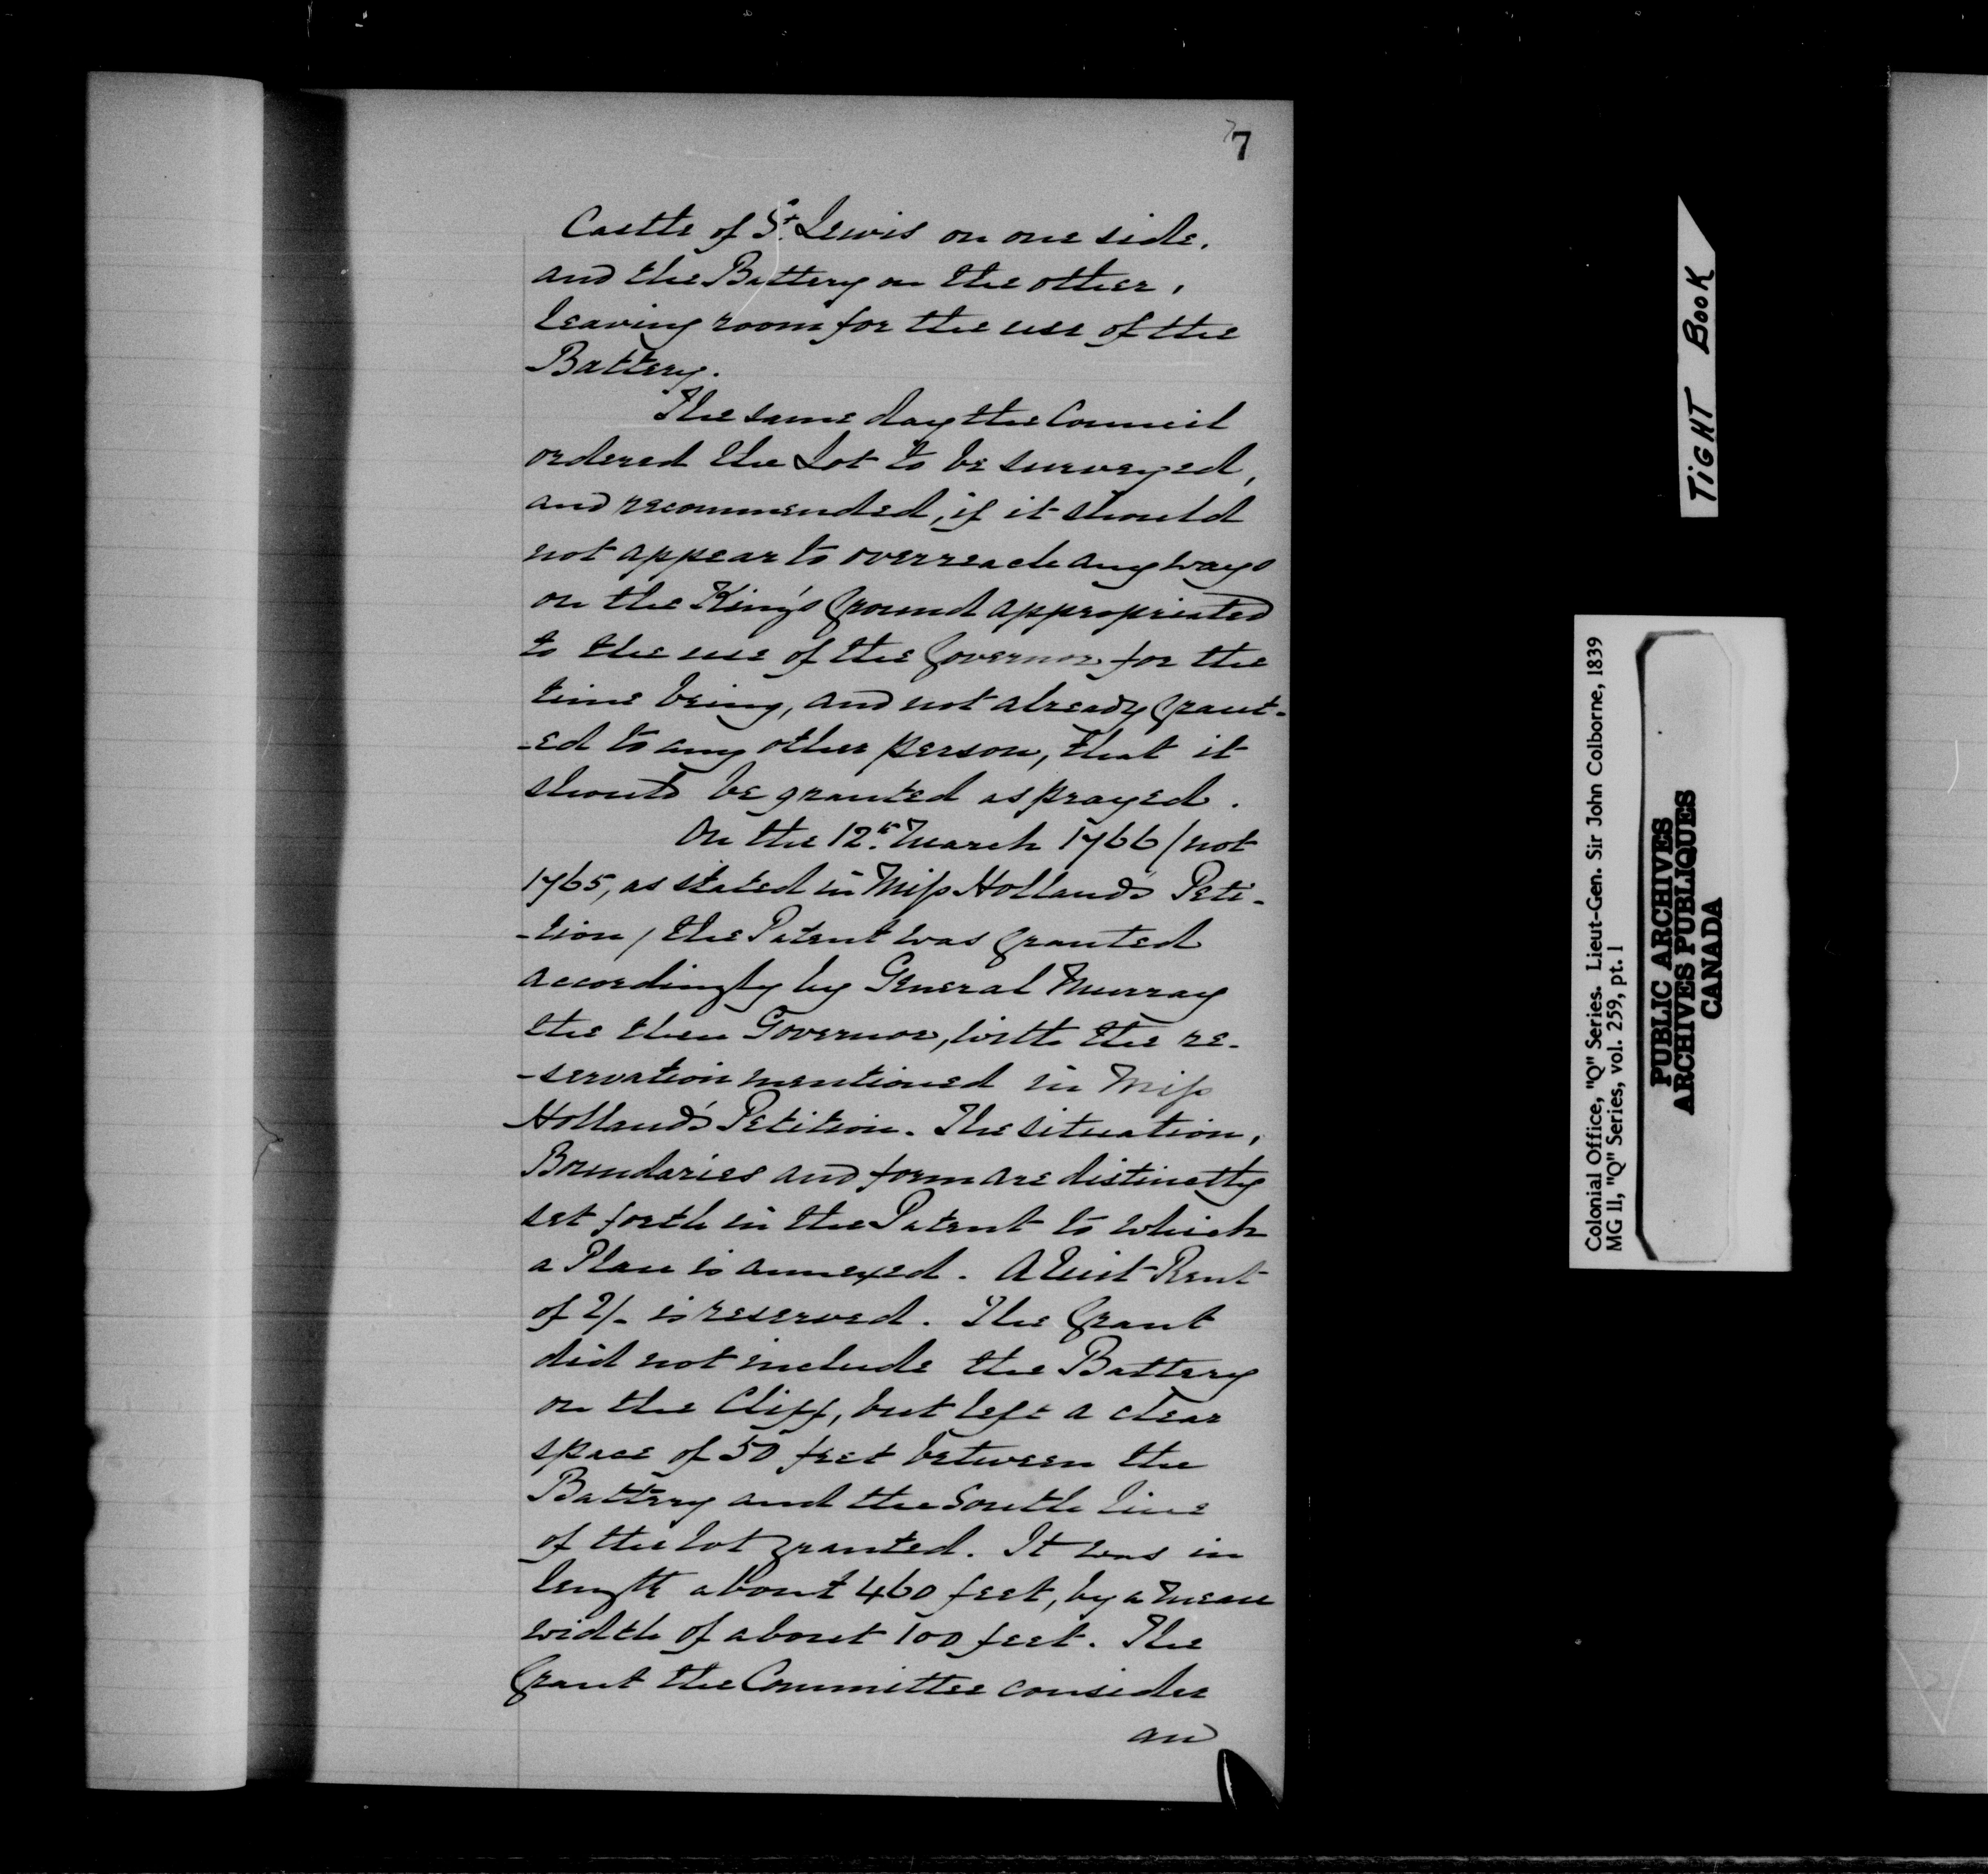 7
Castle of St. Lewis on one side,
and the Battery on the other,
leaving room for the use of the
Battery.
The same day the Council
ordered the Lot to be surveyed,
and recommended, if it should
not appear to overreach any ways
on the King's Ground appropriated
to the use of the Governor for the
time being, and not already Grant-
-ed to any other person, that it
should be granted as prayed.
On the 12th. March 1766 (not
1765, as stated in Miss Holland's Peti-
-tion) the Patent was Granted
accordingly by General Murray
the then Governor, with the re-
-servation mentioned in Miss
Holland's Petition. The situation,
Boundaries and form are distinctly
set forth in the Patent to which
a Plan is annexed. A Quit Rent
of 2/- is reserved. The Grant
did not include the Battery
on the Cliff, but left a clear
space of 50 feet between the
Battery and the South line
of the lot granted. It was in
length about 460 feet, by a mean
width of about 100 feet. The
Grant the Committee consider
an
TIGHT BOOK
Colonial Office, "Q" Series. Lieut-Gen. Sir John Colborne, 1839
MG 11, "Q" Series, vol. 259, pt. 1
PUBLIC ARCHIVES
ARCHIVES PUBLIQUES
CANADA